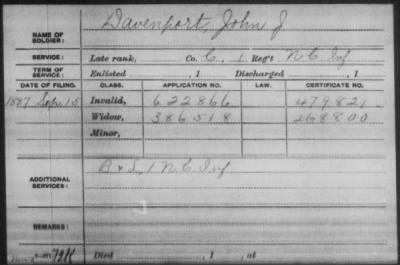 Davenport, John J
NAME OF SOLDIER:
SERVICE: Late rank, Co. C, 1 Reg't N.C. Inf
TERM OF SERVICE: Enlisted , 1 Discharged , 1
DATE OF FILING. CLASS. APPLICATION NO. LAW. CERTIFICATE NO.
1887 Sep. 15 Invalid, 622866 479821
Widow, 386518 268800
Minor,
ADDITIONAL SERVICES: B & L 1 N.C. Inf
REMARKS:
Died , 1 , at